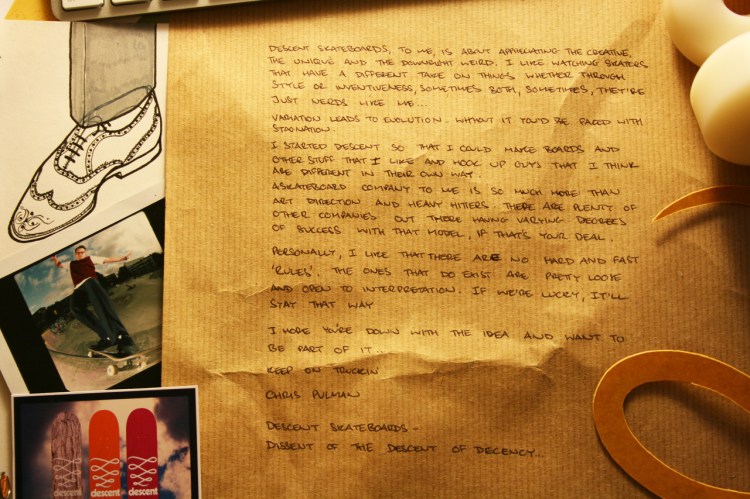 DESCENT SKATEBOARDS, TO ME, IS ABOUT APPRECIATING THE CREATIVE,
THE UNIQUE AND THE DOWNRIGHT WEIRD. I LIKE WATCHING SKATERS
THAT HAVE A DIFFERENT TAKE ON THINGS WHETHER THROUGH
STYLE OR INVENTIVENESS, SOMETIMES BOTH, SOMETIMES, THEY'RE
JUST NERDS LIKE ME...
VARIATION LEADS TO EVOLUTION. WITHOUT IT YOU'D BE FACED WITH
STAGNATION.
I STARTED DESCENT SO THAT I COULD MAKE BOARDS AND
OTHER STUFF THAT I LIKE AND HOOK UP GUYS THAT I THINK
ARE DIFFERENT IN THEIR OWN WAY.
A SKATEBOARD COMPANY TO ME IS SO MUCH MORE THAN
ART DIRECTION AND HEAVY HITTERS. THERE ARE PLENTY OF
OTHER COMPANIES OUT THERE HAVING VARYING DEGREES
OF SUCCESS WITH THAT MODEL, IF THAT'S YOUR DEAL.
PERSONALLY, I LIKE THAT THERE ARE NO HARD AND FAST
'RULES'. THE ONES THAT DO EXIST ARE PRETTY LOOSE
AND OPEN TO INTERPRETATION. IF WE'RE LUCKY, IT'LL
STAY THAT WAY
I HOPE YOU'RE DOWN WITH THE IDEA AND WANT TO
BE PART OF IT...
KEEP ON TRUCKIN'
CHRIS PULMAN
DESCENT SKATEBOARDS -
DISSENT OF THE DESCENT OF DECENCY...
descent descent descent